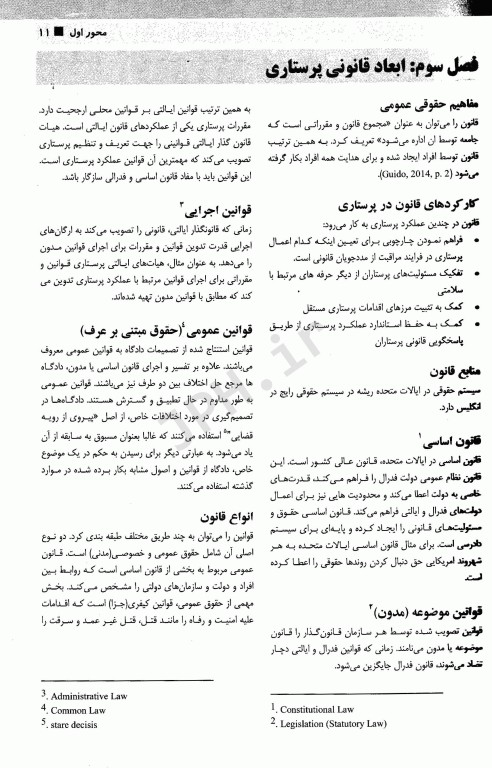 محور اول ■ ۱۱
فصل سوم: ابعاد قانونی پرستاری
مفاهیم حقوقی عمومی
قانون را می‌توان به عنوان «مجموع قانون و مقرراتی است که
جامعه توسط ان اداره می‌شود» تعریف کرد. به همین ترتیب
قانون توسط افراد ایجاد شده و برای هدایت همه افراد بکار گرفته
می‌شود (Guido, 2014, p. 2).
کارکردهای قانون در پرستاری
قانون در چندین عملکرد پرستاری به کار می‌رود:
• فراهم نمودن چارچوبی برای تعیین اینکه کدام اعمال
پرستاری در فرایند مراقبت از مددجویان قانونی است.
• تفکیک مسئولیت‌های پرستاران از دیگر حرفه های مرتبط با
سلامتی
• کمک به تثبیت مرزهای اقدامات پرستاری مستقل
• کمک به حفظ استاندارد عملکرد پرستاری از طریق
پاسخگویی قانونی پرستاران
منابع قانون
سیستم حقوقی در ایالات متحده ریشه در سیستم حقوقی رایج در
انگلیس دارد.
قانون اساسی۱
قانون اساسی در ایالات متحده، قانون عالی کشور است. این
قانون نظام عمومی دولت فدرال را فراهم می‌کند، قدرت‌های
خاصی به دولت اعطا می‌کند و محدودیت هایی نیز برای اعمال
دولت‌های فدرال و ایالتی فراهم می‌کند. قانون اساسی حقوق و
مسئولیت‌های قانونی را ایجاد کرده و پایه‌ای برای سیستم
دادرسی است. برای مثال قانون اساسی ایالات متحده به هر
شهروند امریکایی حق دنبال کردن روندها حقوقی را اعطا کرده
است.
قوانین موضوعه (مدون)۲
قوانین تصویب شده توسط هر سازمان قانون‌گذار را قانون
موضوعه یا مدون می‌نامند. زمانی که قوانین فدرال و ایالتی دچار
تضاد می‌شوند، قانون فدرال جایگزین می‌شود.
1. Constitutional Law
2. Legislation (Statutory Law)
به همین ترتیب قوانین ایالتی بر قوانین محلی ارجحیت دارد.
مقررات پرستاری یکی از عملکردهای قانون ایالتی است. هیات
قانون گذار ایالتی قوانینی را جهت تعریف و تنظیم پرستاری
تصویب می‌کند که مهمترین آن قوانین عملکرد پرستاری است.
این قوانین باید با مفاد قانون اساسی و فدرالی سازگار باشد.
قوانین اجرایی۳
زمانی که قانونگذار ایالتی، قانونی را تصویب می‌کند به ارگان‌های
اجرایی قدرت تدوین قوانین و مقررات برای اجرای قوانین مدون
را می‌دهد. به عنوان مثال، هیات‌های ایالتی پرستاری قوانین و
مقرراتی برای اجرای قوانین مرتبط با عملکرد پرستاری تدوین می
کند که مطابق با قوانین مدون تهیه شده‌اند.
قوانین عمومی۴(حقوق مبتنی بر عرف)
قوانین استنتاج شده از تصمیمات دادگاه به قوانین عمومی معروف
می‌باشند. علاوه بر تفسیر و اجرای قانون اساسی یا مدون، دادگاه
ها مرجع حل اختلاف بین دو طرف نیز می‌باشند. قوانین عمومی
به طور مداوم در حال تطبیق و گسترش هستند. دادگاه‌ها در
تصمیم‌گیری در مورد اختلافات خاص، از اصل «پیروی از رویه
قضایی»۵ استفاده می‌کنند که غالبا بعنوان مسبوق به سابقه از آن
یاد می‌شود. به عبارتی دیگر برای رسیدن به حکم در یک موضوع
خاص، دادگاه از قوانین و اصول مشابه بکار برده شده در موارد
گذشته استفاده می‌کنند.
انواع قانون
قوانین را می‌توان به چند طریق مختلف طبقه بندی کرد. دو نوع
اصلی آن شامل حقوق عمومی و خصوصی(مدنی) است. قانون
عمومی مربوط به بخشی از قانون اساسی است که روابط بین
افراد و دولت و سازمان‌های دولتی را مشخص می‌کند. بخش
مهمی از حقوق عمومی، قوانین کیفری(جزا) است که اقدامات
علیه امنیت و رفاه را مانند قتل، قتل غیر عمد و سرقت را
3. Administrative Law
4. Common Law
5. stare decisis